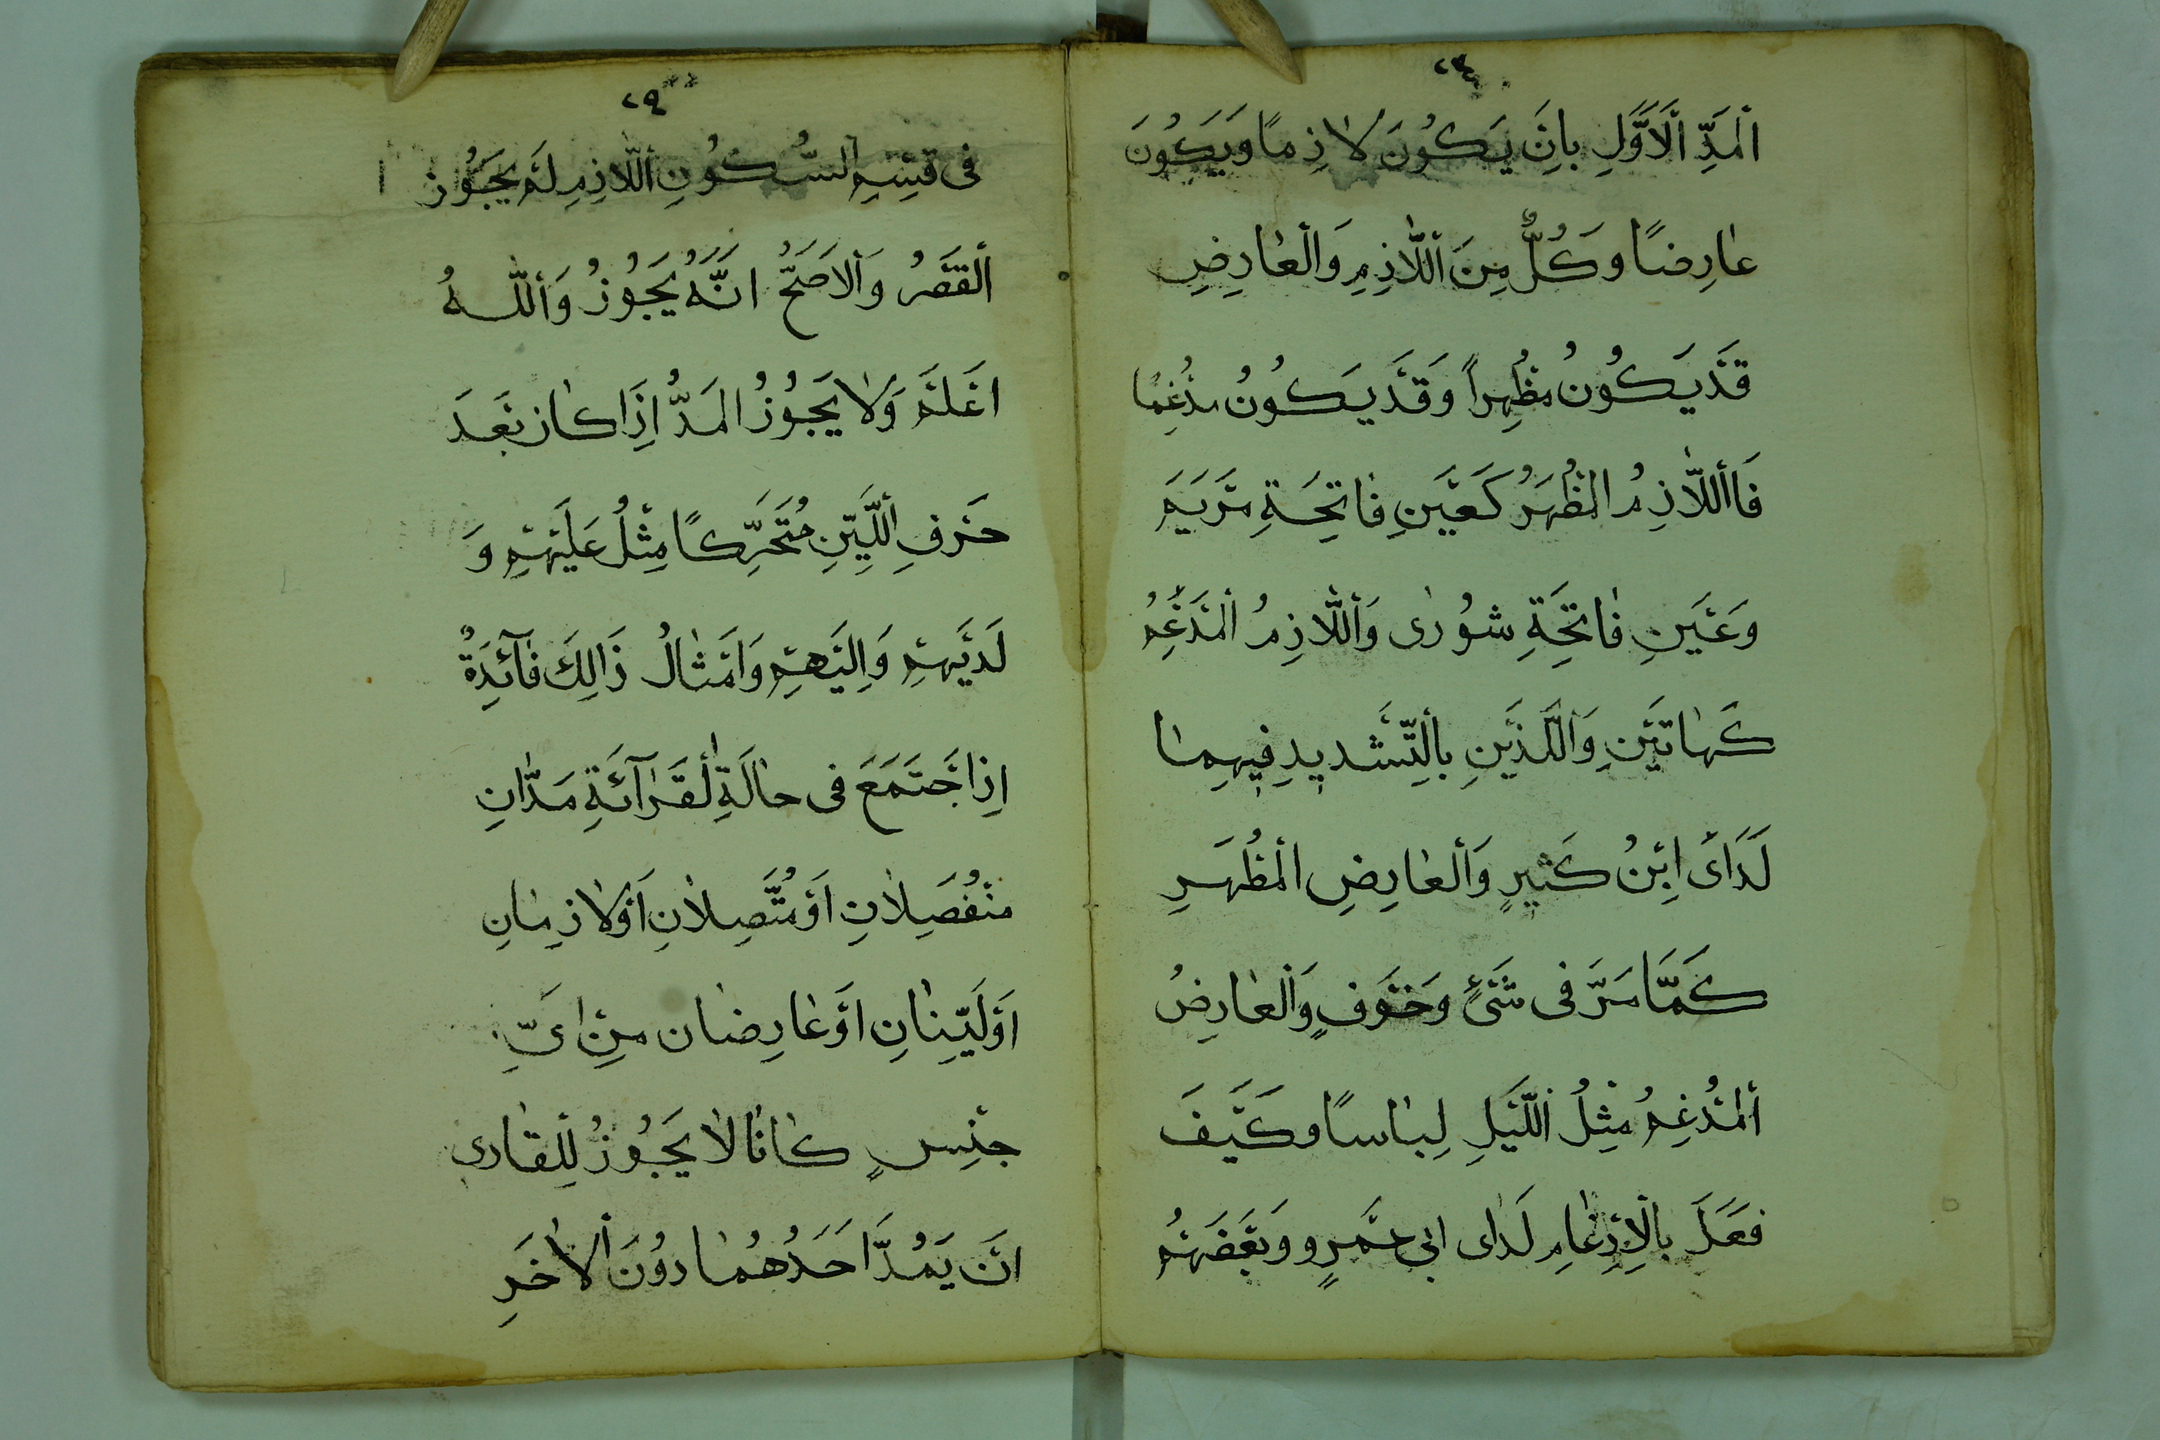 اَلْمَدِّ اَلْاَوَّلِ بِاَنْ يَكُونَ لَازِمًا وَيَكُونَ
عَارِضًا وَكُلٌّ مِنَ اَللَّازِمِ وَالْعَارِضِ
قَدْ يَكُونُ مُظْهِراً وَقَدْ يَكُونُ مُدْغِمًا
فَااَللَّازِمُ الْمُظْهَرُ كَعَيْنِ فَاتِحَةِ مَرْيَمَ
وَعَيْنِ فَاتِحَةِ شُورٰى وَاَللَّازِمُ اَلْمُدْغِمُ
كَهَاتَيْنِ وَالَّذَيْنِ بِالتَّشْدِيدِ فِيهِمَا
لَدَاىْ اِبْنُ كَثِيرٍ وَاَلْعَارِضِ الْمُظْهَرِ
كَمَّا مَرَّ فى شَىْءٍ وَخَوْفٍ وَالْعَارِضُ
اَلْمُدْغِمُ مِثْلُ اَللَّيْلِ لِبَاسًا وَكَيْفَ
فَعَلَ بِالْاِدْغَامِ لَدٰاى ابى عَمْرٍو وَبَعْضَهُمْ
٢٩
فى قِسْمِ اَلسُّكُونِ اَللَّازِمِ لَمْ يَجُوْزْ
اَلْقَصْرُ وَاَلْاَصَحُّ اَنَّهُ يَجُوْزُ وَاَللّٰهُ
اَعْلَمْ وَلَا يَجُوْزُ الْمَدُّ اِذَا كَانَ بَعْدَ
حَرْفِ اَللِّيْنِ مُتَحَرِّكًا مِثْلُ عَلَيْهِمْ وَ
لَدَيْهِمْ وَاِلَيْهِمْ وَاَمْثَالُ ذَالِكَ فَآئِدَةٌ
اِذَا جْتَمَعَ فى حَالَةِ اَلْقَرَآئَةِ مَدَّانِ
مُنْفَصِلَانِ اَوْ مُتَّصِلَانِ اَوْ لَازِمَانِ
اَوْ لَيِّنَانِ اَوْ عَارِضَان مِنْ اَىِّ
جِنْسٍ كَانَا لَا يَجُوْزُ لِلْقَارى
اَنْ يَمُدَّ اَحَدُهُمَا دُوْنَ اَلْاٰخَرِ